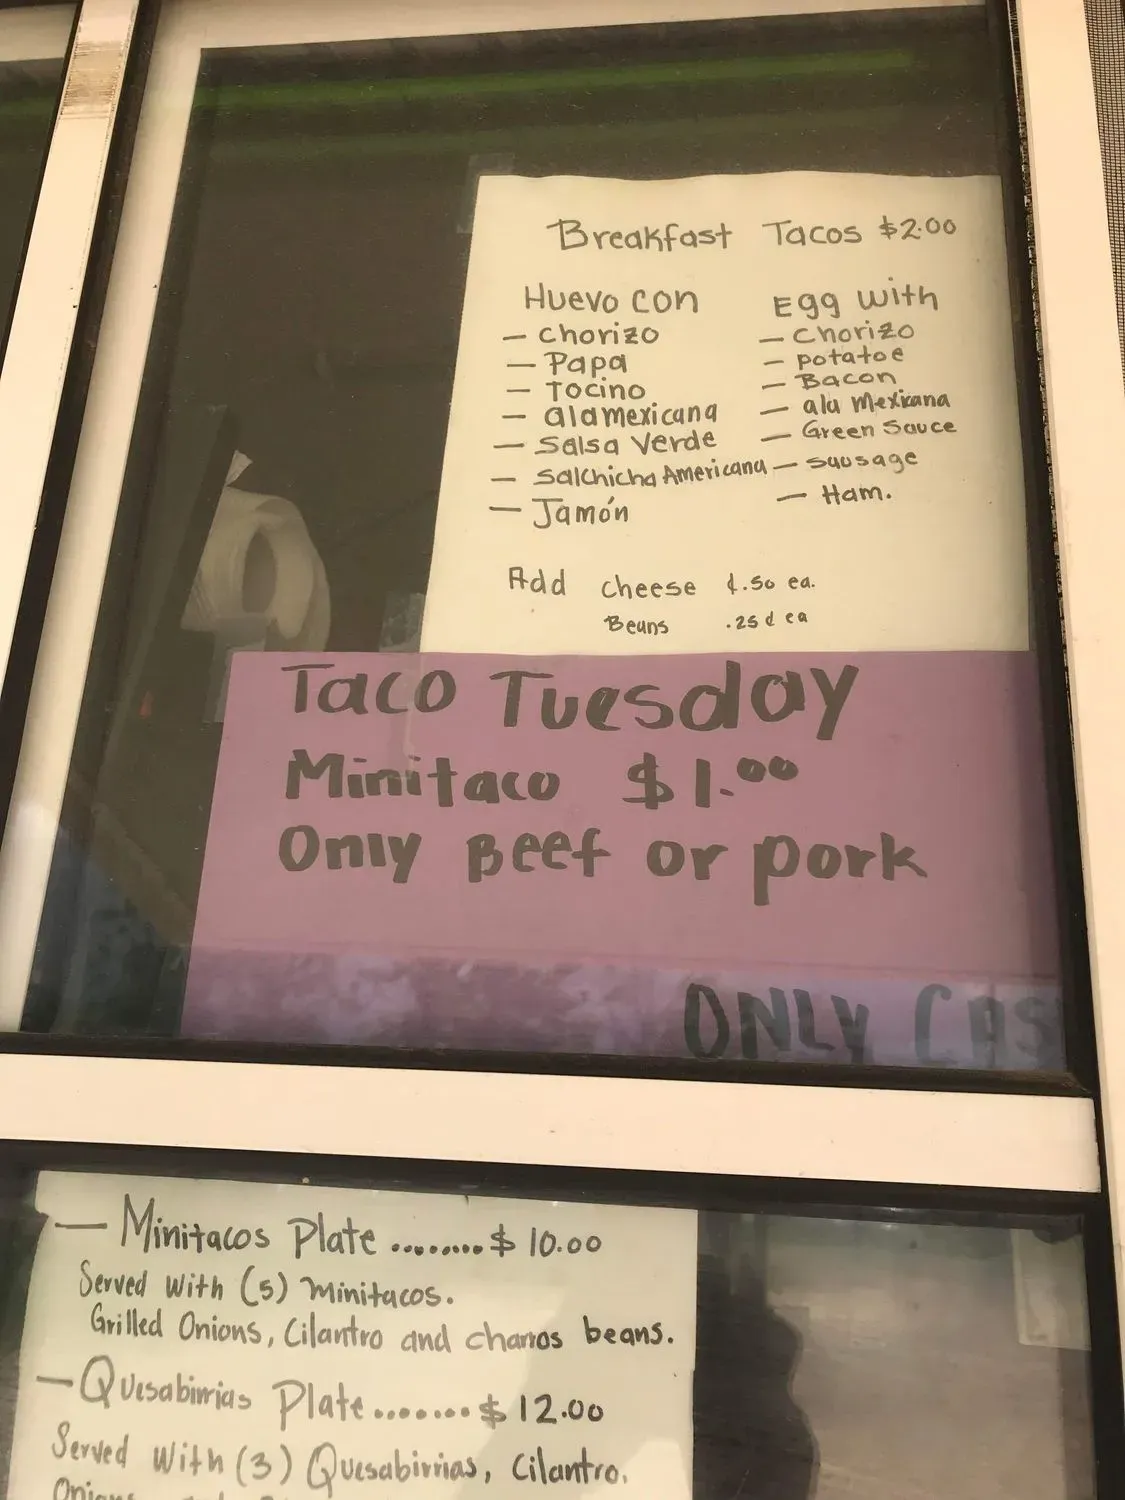 Breakfast Tacos $2.00
Huevo con
- Chorizo
- Papa
- Tocino
- alamexicana
- Salsa Verde
- Salchicha Americana
- Jamón
Egg with
- Chorizo
- potatoe
- Bacon
- ala Mexicana
- Green Sauce
- sausage
- Ham.
Add cheese ¢.50 ea.
Beans .25¢ ea
Taco Tuesday
Minitaco $1.00
Only Beef or pork
ONLY CAS
- Minitacos Plate ......... $ 10.00
Served with (5) minitacos.
Grilled Onions, Cilantro and charros beans.
- Quesabirrias Plate ....... $ 12.00
Served with (3) Quesabirrias, Cilantro,